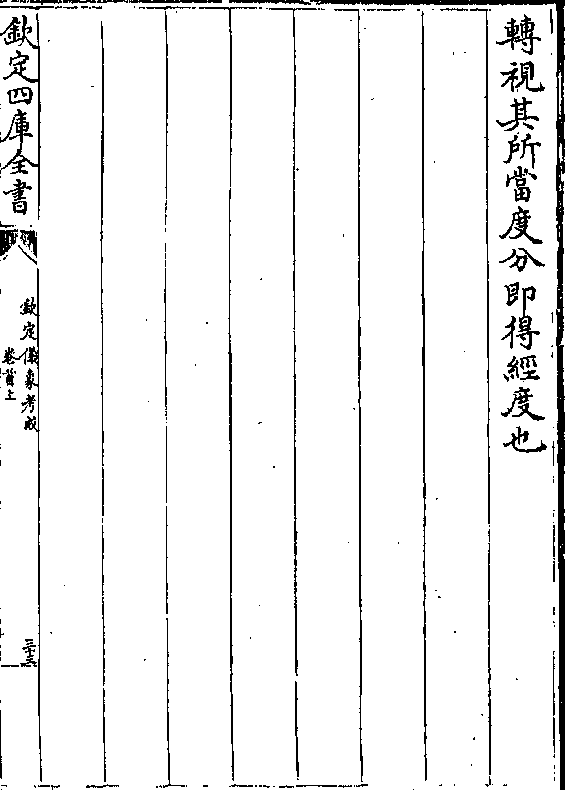 轉視其所當度分即得經度也
欽定四庫全書
欽定儀象考成
卷首上
三十三